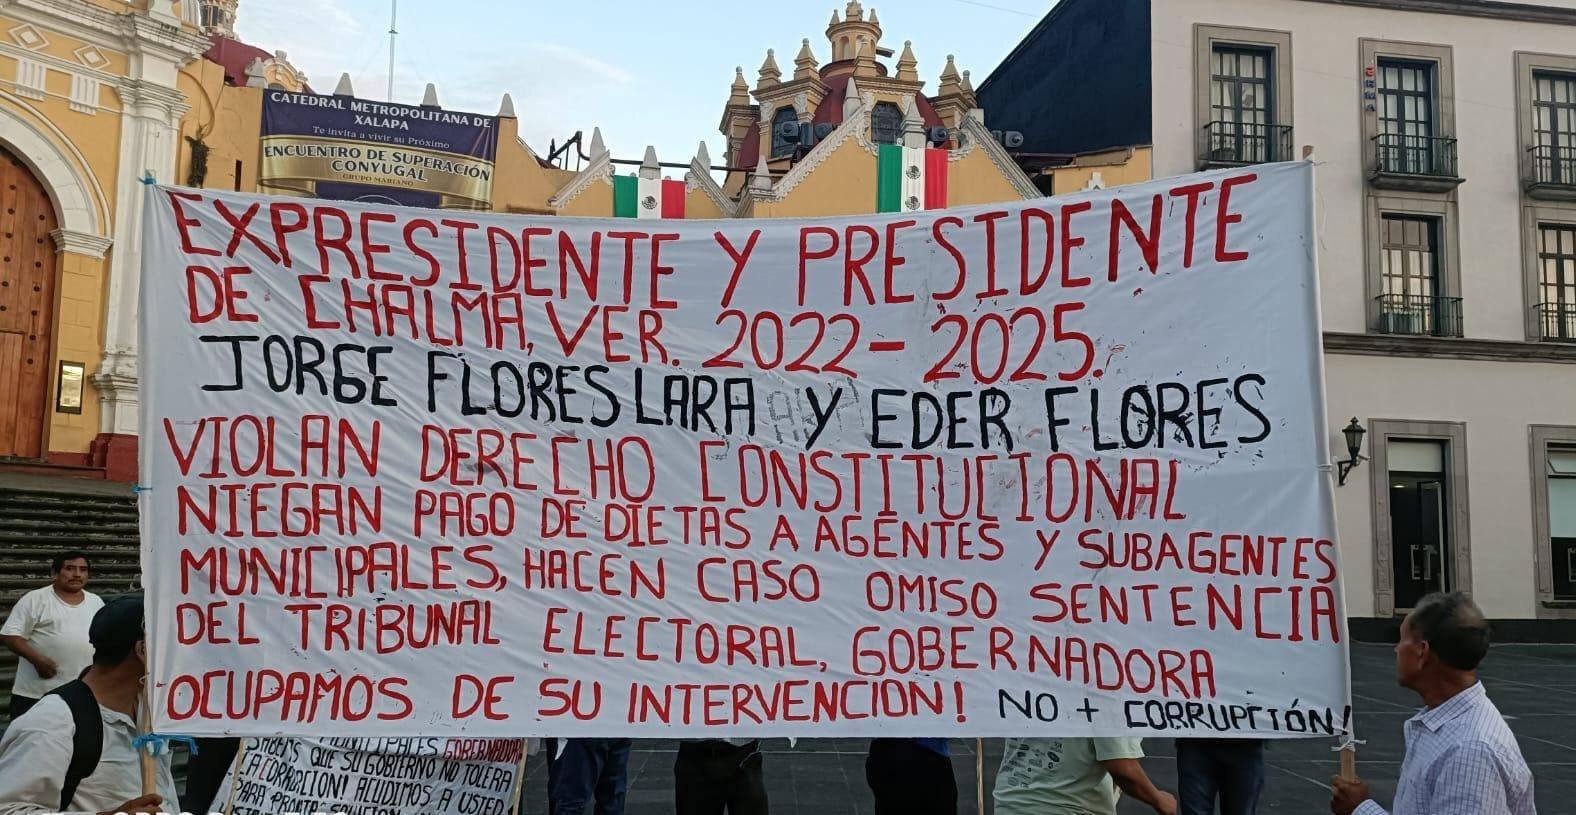 CATEDRAL METROPOLITANA DE
XALAPA
Te invita a vivir su Próximo
ENCUENTRO DE SUPERACIÓN
CONYUGAL
GRUPO MARIANO
EXPRESIDENTE Y PRESIDENTE
DE CHALMA, VER. 2022-2025.
JORGE FLORES LARA Y EDER FLORES
VIOLAN DERECHO CONSTITUCIONAL
NIEGAN PAGO DE DIETAS A AGENTES Y SUBAGENTES
MUNICIPALES, HACEN CASO OMISO SENTENCIA
DEL TRIBUNAL ELECTORAL, GOBERNADORA
OCUPAMOS DE SU INTERVENCION! NO + CORRUPCIÓN!
MUNICIPALES GOBERNADORA
SABEMOS QUE SU GOBIERNO NO TOLERA
LA CORRUPCION! ACUDIMOS A USTED
PARA PRONTA SOLUCION